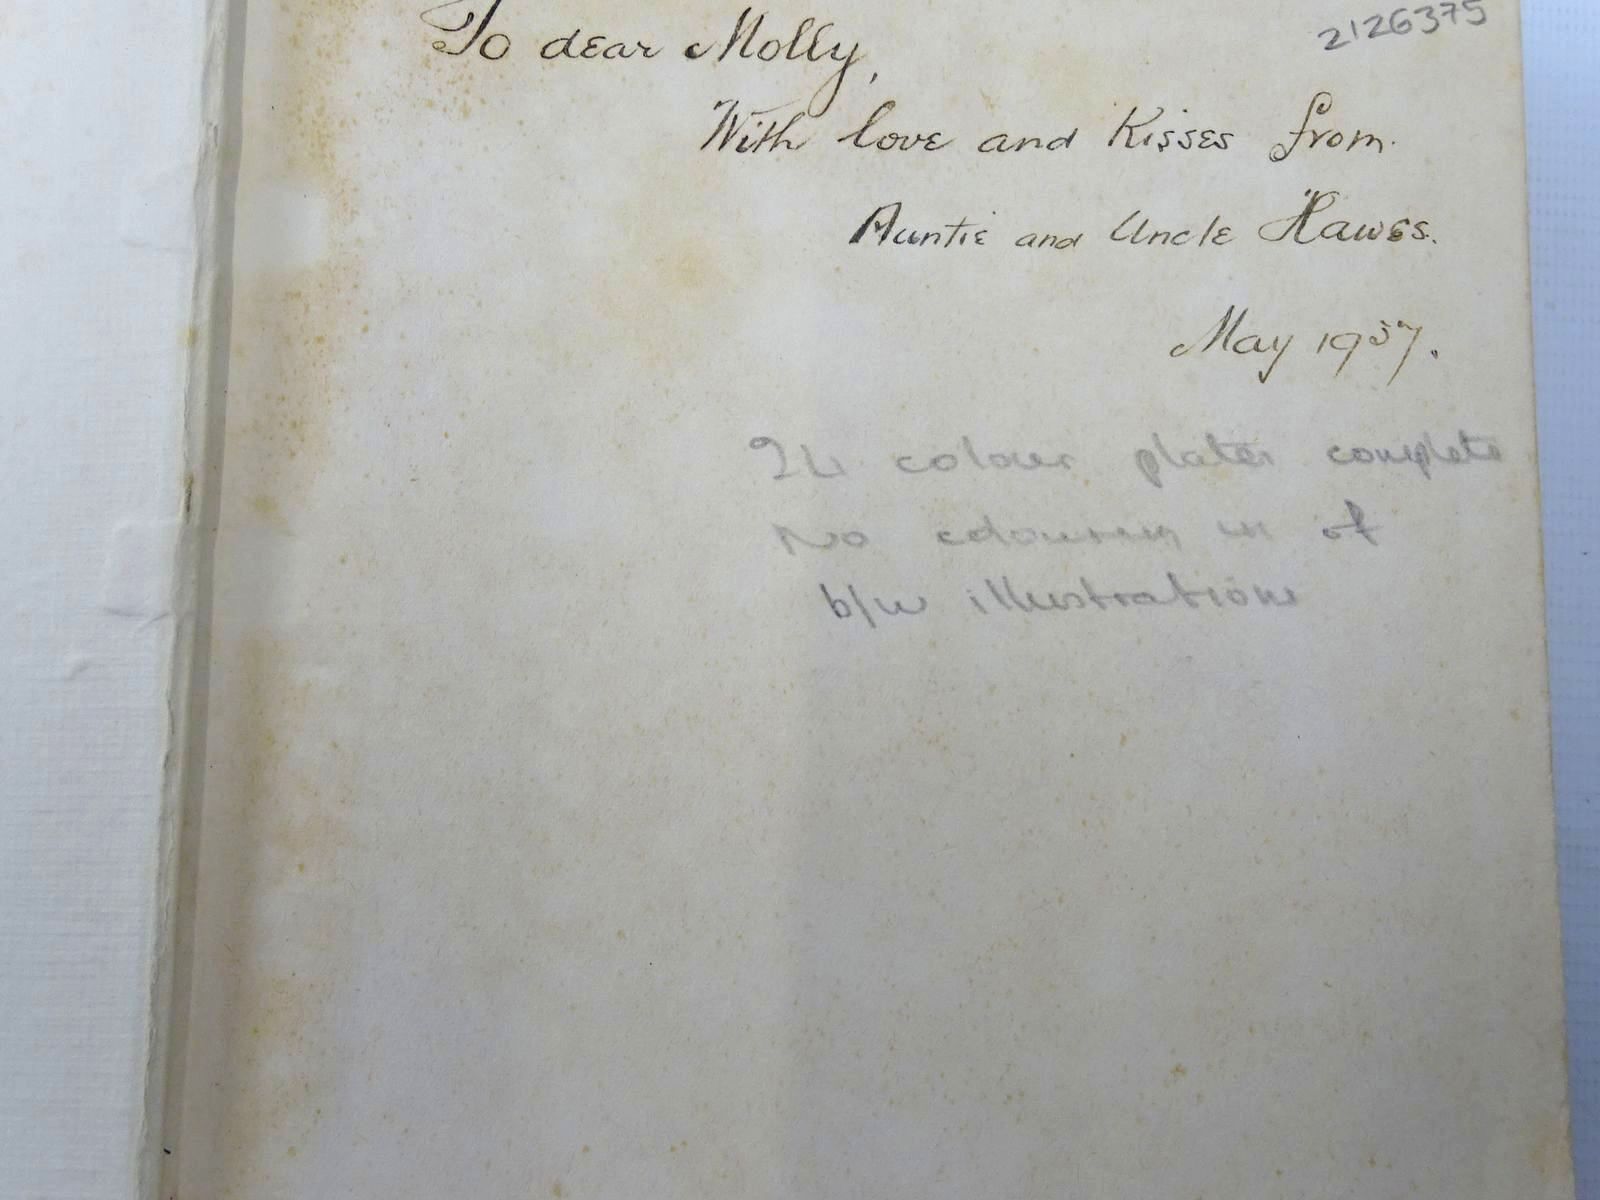 2126375
To dear Molly,
With love and Kisses from.
Auntie and Uncle Hawes.
May 1937.
24 colour plates complete
No colouring in of
b/w illustrations